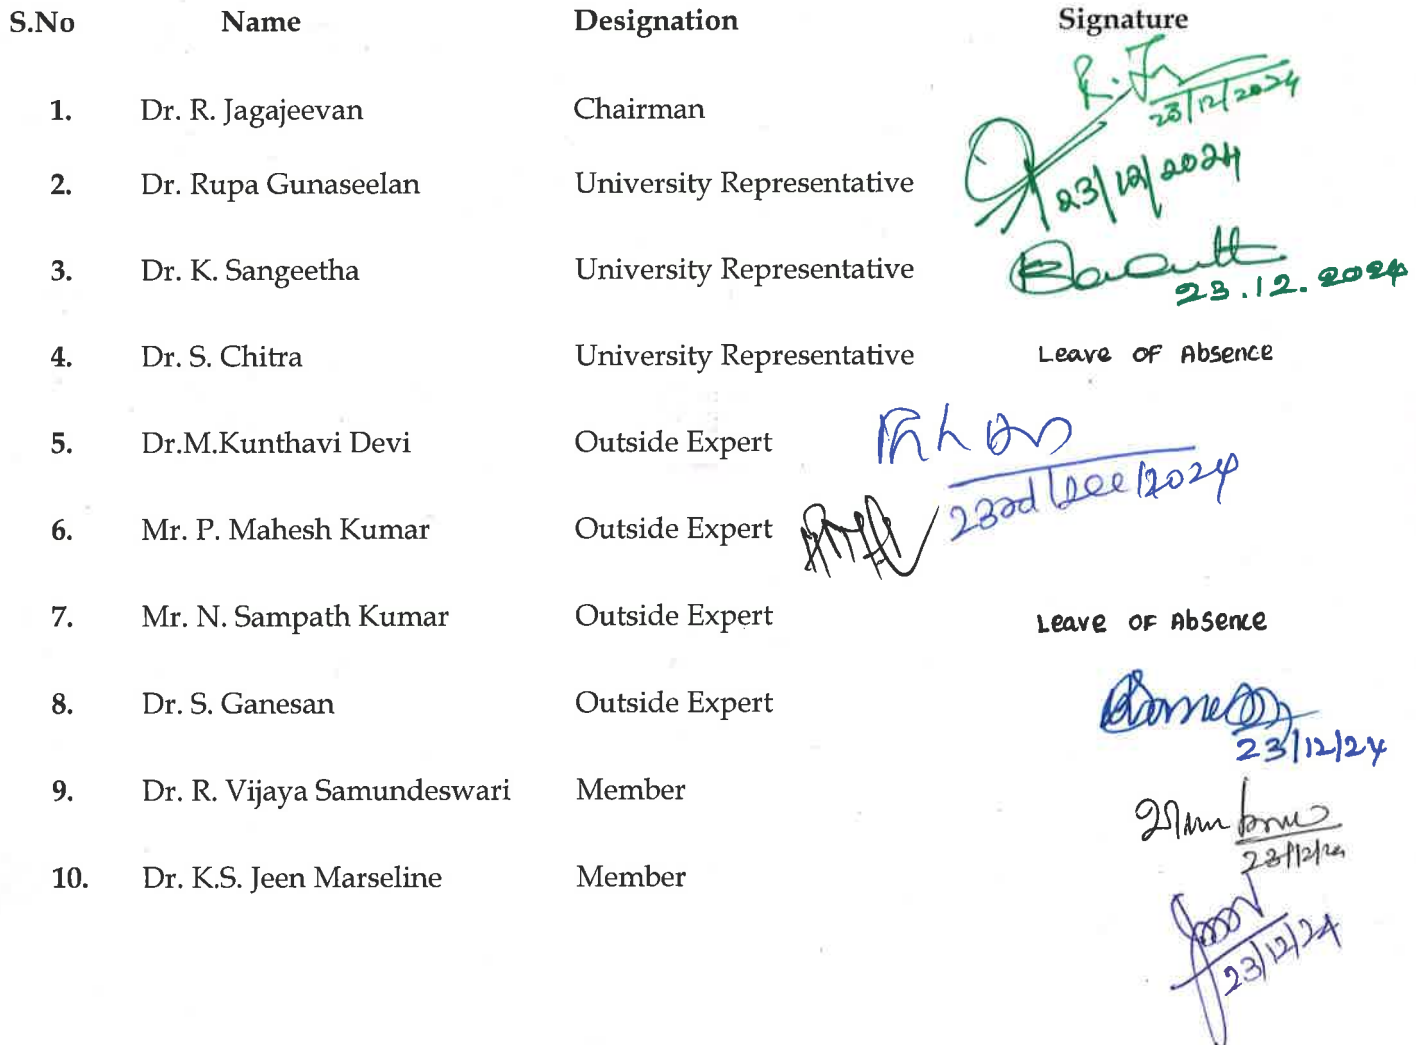 S.No Name Designation Signature
1. Dr. R. Jagajeevan Chairman R. J 23/12/2024
2. Dr. Rupa Gunaseelan University Representative 23/12/2024
3. Dr. K. Sangeetha University Representative 23.12.2024
4. Dr. S. Chitra University Representative Leave OF Absence
5. Dr.M.Kunthavi Devi Outside Expert 23rd/Dec/2024
6. Mr. P. Mahesh Kumar Outside Expert
7. Mr. N. Sampath Kumar Outside Expert Leave OF Absence
8. Dr. S. Ganesan Outside Expert 23/12/24
9. Dr. R. Vijaya Samundeswari Member 23/12/24
10. Dr. K.S. Jeen Marseline Member 23/12/24